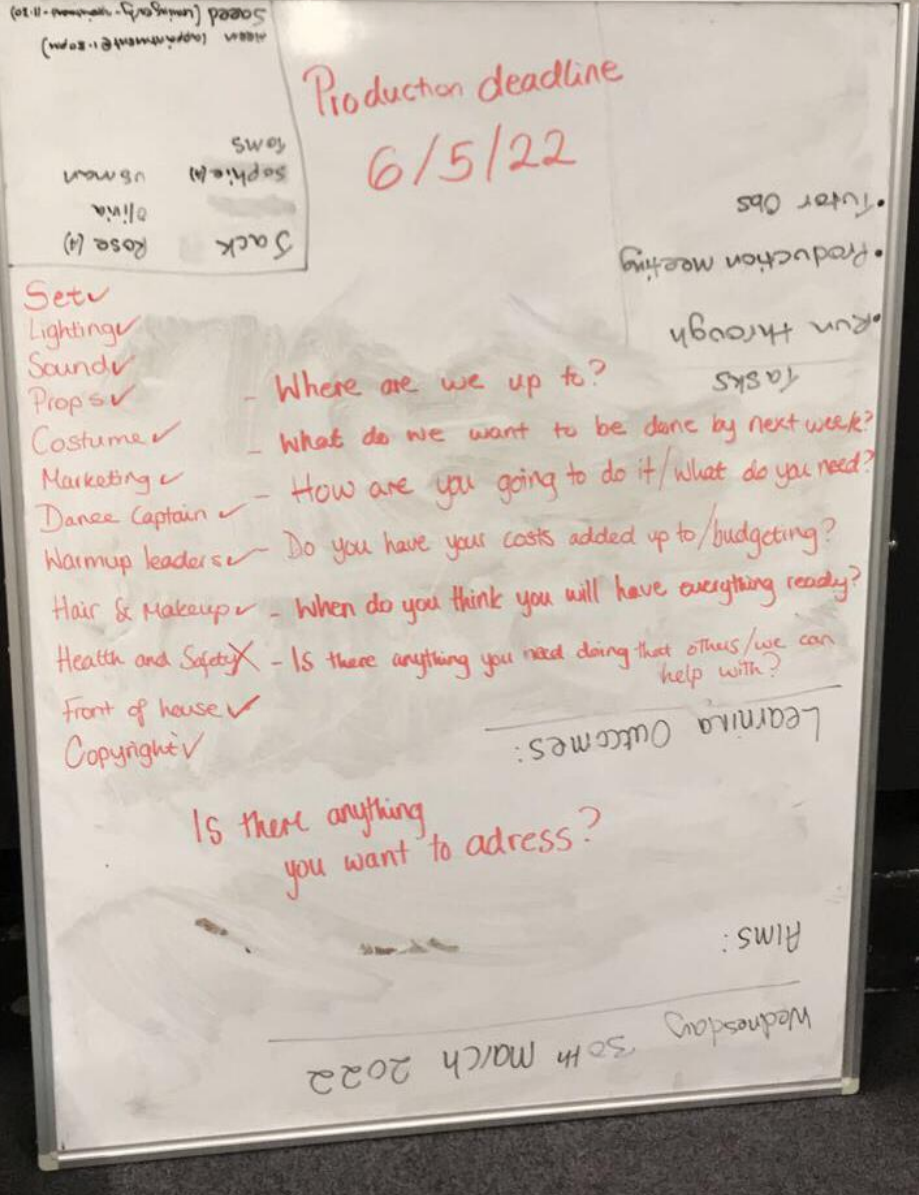 Production deadline
6/5/22
Set✓
Lighting✓
Sound✓
Props✓
Costume✓
Marketing✓
Dance Captain ✓
Warmup leaders✓
Hair & Makeup✓
Health and Safety X
Front of house ✓
Copyright ✓
- Where are we up to?
- What do we want to be done by next week?
- How are you going to do it/what do you need?
- Do you have your costs added up to/budgeting?
- When do you think you will have everything ready?
- Is there anything you need doing that others/we can
help with?
Is there anything
you want to adress?
Wednesday 30th March 2022
Aims:
Learning Outcomes:
Tasks
•Run through
•Production meeting
•Tutor Obs
Jack Rose (4)
Olivia
Sophie (4) Usman
Toms
(appointment@1:80pm)
Saeed